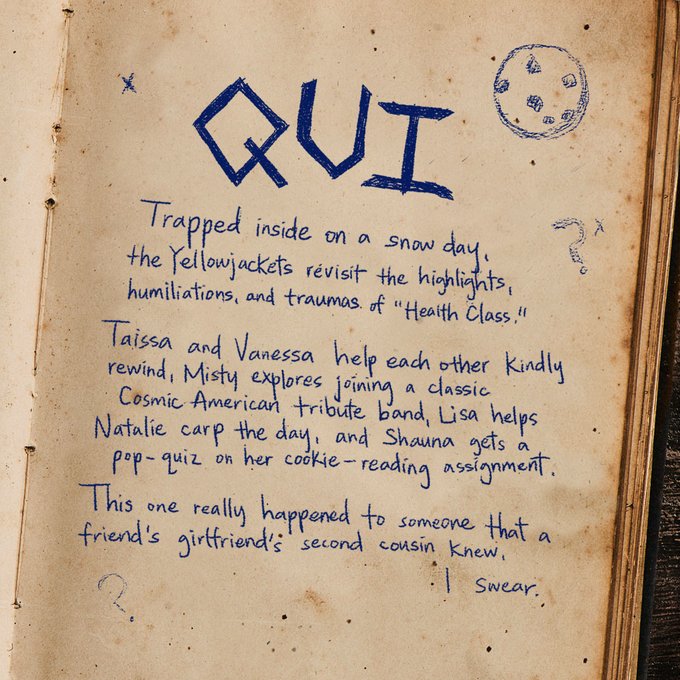 QUI
Trapped inside on a snow day,
the Yellowjackets revisit the highlights,
humiliations, and traumas of "Health Class."
Taissa and Vanessa help each other kindly
rewind, Misty explores joining a classic
Cosmic American tribute band, Lisa helps
Natalie carp the day, and Shauna gets a
pop-quiz on her cookie-reading assignment.
This one really happened to someone that a
friend's girlfriend's second cousin knew,
I swear.
?
?